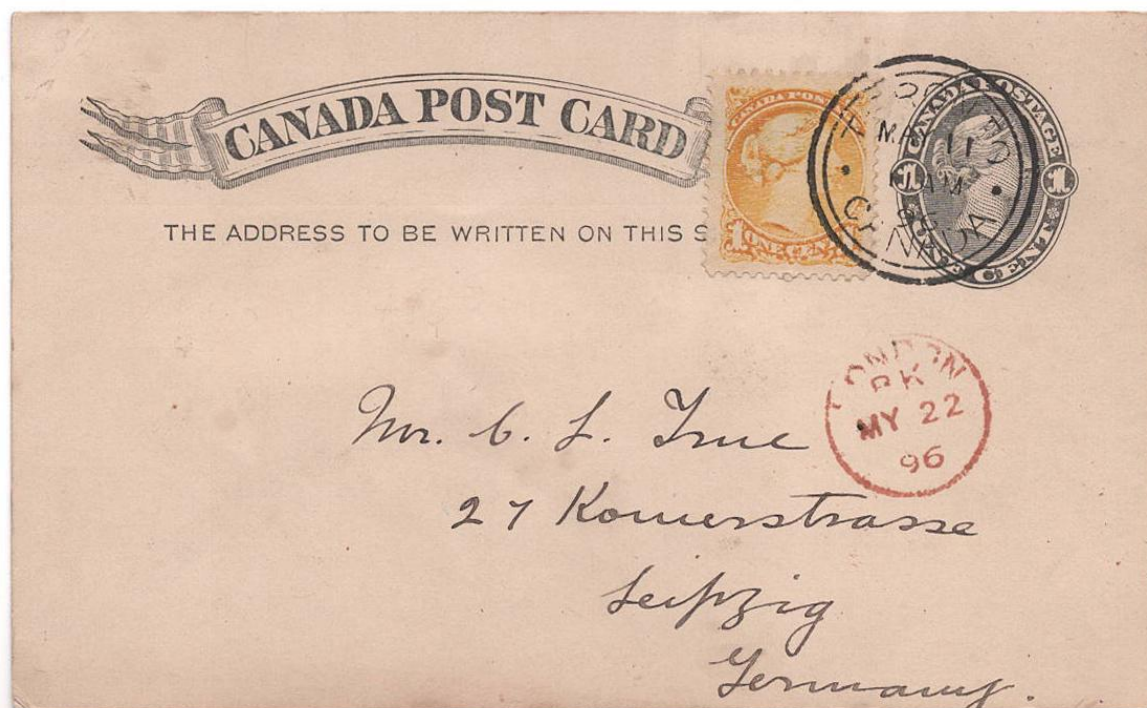 CANADA POST CARD
THE ADDRESS TO BE WRITTEN ON THIS S
CANADA POSTAGE
ONE CENT
CANADA POSTAGE
11
AM
CANADA
LONDON
MY 22
96
Mr. C. L. True
27 Kornerstrasse
Leipzig
Germany.